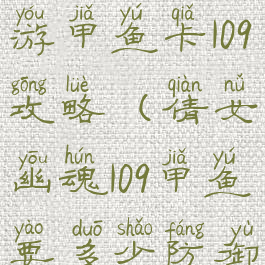 yóu jiǎ yú qiǎ
游甲鱼卡109
gōng lüè qiàn nǚ
攻略(倩女
yōu hún jiǎ yú
幽魂109甲鱼
yào duō shǎo fáng yù
要多少防御